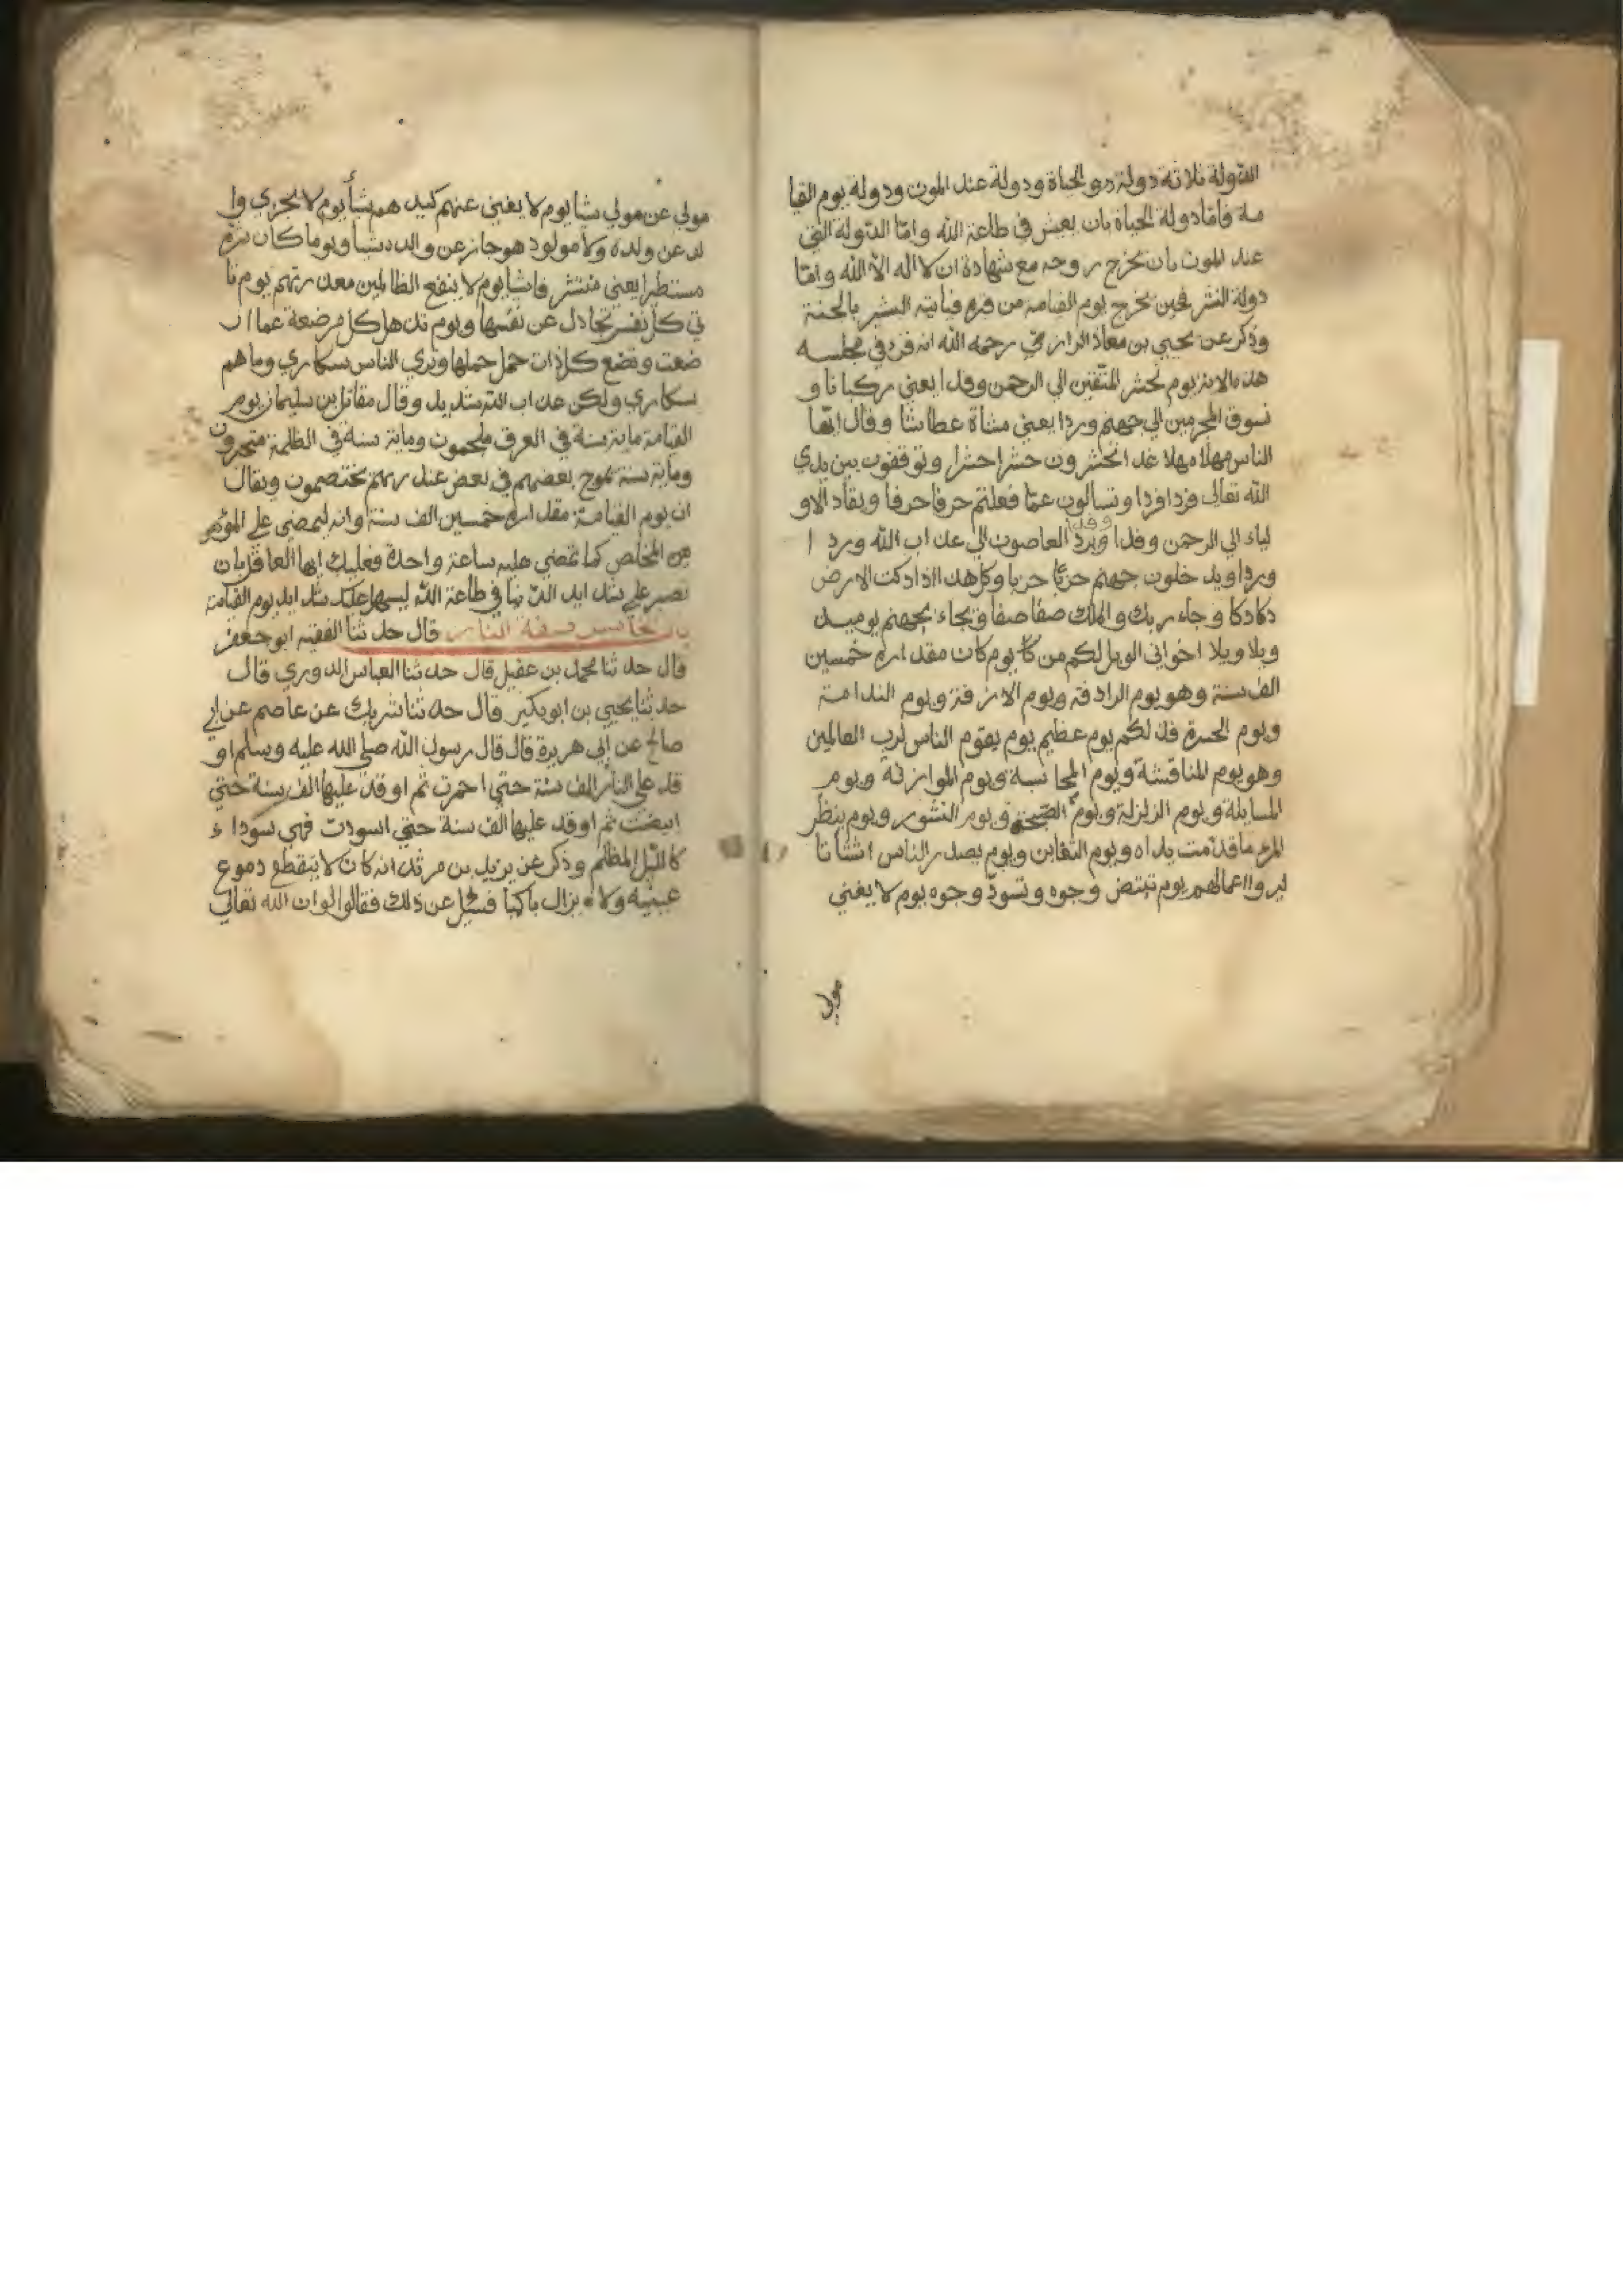 الدولة ثلاثة دولة في الحياة ودولة عند الموت ودولة يوم القيا
مة فاما دولة الحياة بان يعيش في طاعة الله وامّا الدّولة التي
عند الموت بان تخرج روحه مع شهادة ان لا اله الا الله وامّا
دولة النشر فحين يخرج يوم القيامة من قبره فياتيه البشير بالجنة
وذكر عن يحيي بن معاذ الرازي رحمه الله انه قرئ في مجلسه
هذه الاية يوم نحشر المتّقين الي الرحمن وفدا يعني ركبانا و
نسوق المجرمين الي جهنم وردا يعني مشاة عطاشا وقال ايّها
الناس مهلا مهلا غدا تحشرون حشرا حشرا وتوقفون بين يدي
الله تعالى فردا فردا وتسالون عمّا فعلتم حرفا حرفا ويقاد الاو
لياء الي الرحمن وفدا وفدا ويردّ العاصون الي عذاب الله وردا
وردا ويدخلون جهنم حزبا حزبا وكل هذا اذا دكت الارض
دكا دكا وجاء ربك والملك صفا صفا ويجاء بجهنم يوميذ
ويلا ويلا اخواني الويل لكم من يوم كان مقداره خمسين
الف سنة وهو يوم الرادفة ويوم الازفة ويوم الندامة
ويوم الحسرة فذلكم يوم عظيم يوم يقوم الناس لرب العالمين
وهو يوم المناقشة ويوم المحاسبة ويوم الموازنة ويوم
المسايلة ويوم الزلزلة ويوم الصيحة ويوم النشور ويوم ينظر
المرء ما قدّمت يداه ويوم التغابن ويوم يصدر الناس اشتاتا
ليروا اعمالهم يوم تبيّض وجوه وتسودّ وجوه يوم لا يغني
مولي
مولي عن مولي شيا يوم لا يغني عنهم كيدهم شيأ يوم لا يجزي وا
لد عن ولده ولا مولود هو جاز عن والده شيا ويوما كان شره
مستطيرا يعني منتشر فاشيا يوم لا ينفع الظالمين معذرتهم يوم تا
تي كل نفس تجادل عن نفسها ويوم تذهل كل مرضعة عما ار
ضعت وتضع كل ذات حمل حملها وتري الناس سكاري وما هم
سكاري ولكن عذاب الله شديد وقال مقاتل بن سليمان يوم
القيامة ماية سنة في العرق ملجمون وماية سنة في الظلمة متحيرون
وماية سنة يموج بعضهم في بعض عند ربهم يختصمون ويقال
ان يوم القيامة مقداره خمسين الف سنة وانه ليمضي علي المؤمن
من المخلص كما تمضي عليه ساعة واحدة فعليك ايها العاقل بان
تصبر علي شدايد الدّنيا في طاعة اللّه ليسهل عليك شدايد يوم القيامة
باب الخامس صفة النار قال حدثنا الفقيه ابو جعفر
قال حدثنا محمد بن عقيل قال حدثنا العباس الدوري قال
حدثنا يحيي بن ابو بكير قال حدثنا شريك عن عاصم عن ابي
صالح عن ابي هريرة قال قال رسول الله صلي الله عليه وسلم او
قد علي النار الف سنة حتي احمرت ثم اوقد عليها الف سنة حتي
ابيضت ثم اوقد عليها الف سنة حتي اسودت فهي سوداء
كالليل المظلم وذكر عن يزيد بن مرثد انه كان لا ينقطع دموع
عينيه ولا يزال باكيا فسيل عن ذلك فقال لو ان الله تعالي